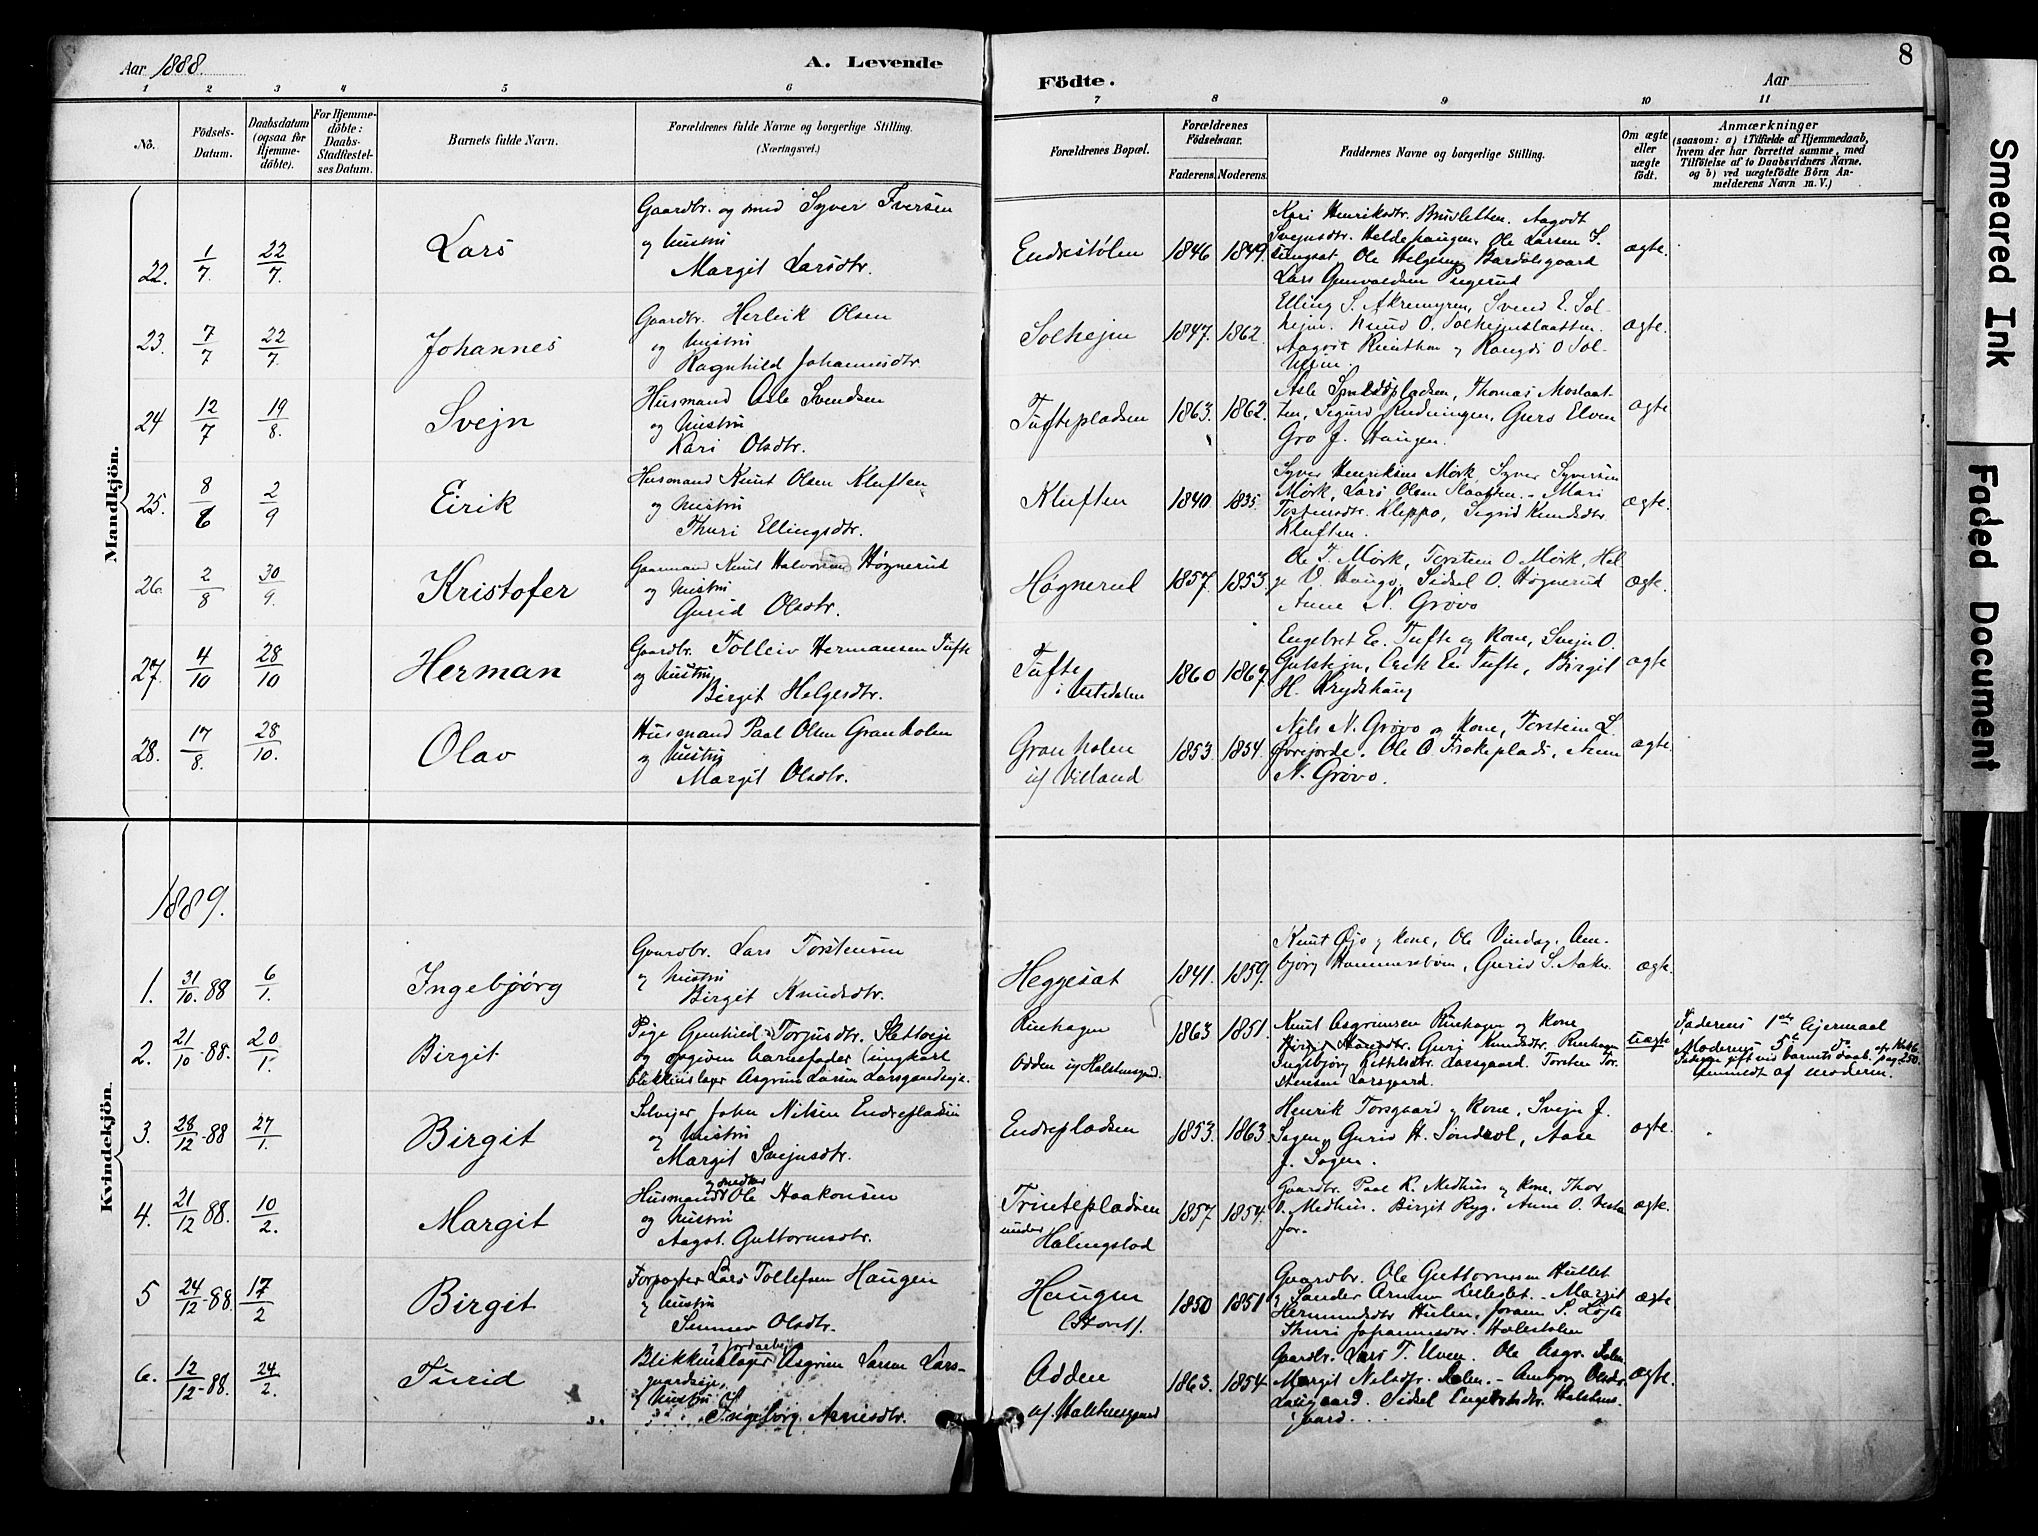 Aar 1888.
A. Levende
Födte.
Aar
8
1 2 3 4 5 6 7 8 9 10 11
No.
Födsels-
Datum.
Daabsdatum
(ogsaa for
Hjemme-
döbte).
For Hjemme-
döbte:
Daabs-
Stadfæstel-
ses Datum.
Barnets fulde Navn.
Forældrenes fulde Navne og borgerlige Stilling.
(Næringsvei.)
Forældrenes Bopæl.
Forældrenes
Födselsaar.
Faderens. Moderens.
Faddernes Navne og borgerlige Stilling.
Om ægte
eller
uægte
født.
Anmærkninger
(saasom: a) i Tilfælde af Hjemmedaab,
hvem der har forrettet samme, med
Tilföielse af to Daabsvidners Navne.
og b) ved uægtefödte Börn An-
melderens Navn m. V.)
Mandkjön.
22. 1/7. 22/7. Lars
Gaardbr. og smed Syver Iversen
og hustru
Margit Larsdtr.
Endrestølen 1846 1849.
Kari Henriksdtr. Brusletten. Aagodt
Svejnsdtr. Heldehaugen, Ole Larsen
Ole Helgesen Bardølsgaard
Lars
ægte.
23. 7/7 22/7. Johannes
Gaardbr. Herleik Olsen
og hustru
Ragnhild Johannesdtr.
Solhejm 1847. 1862.
Elling S. Akremyren, Svend E. Sol-
hejm. Knud O. Solhejmslaatten.
Aagodt og Rangdi O Sol-
ægte.
24 12/7 19/8. Svejn
Husmand Asle Svendsen
og hustru
Kari Olsdtr.
Tuftepladsen 1863. 1862.
Asle Thomas Moslaat-
ten, Sigurd Rudningen, Guro Elven
Gro J. Haugen.
ægte
25. 8/6 2/9 Eirik
Husmand Knut Olsen Kluften
og hustru
Thuri Ellingsdtr.
Kluften 1840 1835.
Syver Henriksen Mörk, Syver Syversen
Mörk, Lars Olsen Slaatten. - Mari
Tostensdtr. Kleppo, Sigrid Knudsdtr.
Kluften.
ægte.
26. 2/8 30/9. Kristofer
Gaarmand Knut Halvorsen Høgnerud
og hustru
Gurid Olsdtr.
Høgnerud 1857. 1853.
Ole T. Mörk, Torstein O Mörk, Hel-
ge V. Haugo, Sidsel O. Høgnerud
Anne N. Grøvo
ægte.
27. 4/10 28/10 Herman
Gaardbr. Tolleiv Hermansen Tufte
og hustru
Birgit Helgesdtr.
Tufte
1860 1867.
Engebret E. Tufte og Kone, Svejn O.
Gulstejn, Eirik E. Tufte, Birgit
H. Krydshaug
ægte
28. 17/8. 28/10. Olav
Husmand Paal Olsen Granholen
og hustru
Margit Olsdtr.
Granholen
u/ Villand
1853. 1854.
Nils N. Grøvo og Kone, Torstein L.
Øvrejorde. Ole O. Anne
N. Grøvo.
ægte
Kvindekjön.
1889.
1. 31/10.88 6/1. Ingebjørg
Gaardbr. Lars Torstensen
og hustru
Birgit Knudsdtr.
Heggesat 1841. 1859.
Knut Øjo og Kone, Ole Vindag, Am-
bjørg Hammersbøen, Gurid S. Aaker.
ægte.
2. 21/10.88. 20/1. Birgit
Pige Gunhild Torjusdtr. Slettveje
og opgiven barnefader (ungkarl
blikkenslager Asgrim Larsen Larsgaardseje.
Ruehagen
Odden u/ Halstensgaard.
1863 1851.
Knut Asgrimsen Ruehagen og Kone
Birgit Guri Knudsdtr. Ruehagen
Ingebjørg Kittilsdtr. Larsgaard. Torsten Tor-
stensen Larsgaard.
uægte
Faderens 1ste Lejermaal
Moderens 5te do
Faderen gift ved barnets daab.
Anmeldt af moderen.
3. 28/12.88 27/1. Birgit
Selvejer John Nilsen Endrepladsen
og hustru
Margit Svejnsdtr.
Endrepladsen 1853. 1863.
Henrik Torsgaard og Kone, Svejn J.
Sagen, Gurid H. Søndrol, Aase
J. Sagen.
ægte.
4. 21/12.88. 10/2. Margit
Husmand og snedker Ole Haakonsen
og hustru
Aagot Guttormsdtr.
Trintepladsen
under Halingstad
1857 1854.
Gaardbr. Paal K. Medhus og Kone, Thor
O. Medhus. Birgit Ryg. Anne O.
ægte.
5 24/12-88. 17/2 Birgit
Forpagter Lars Tollefsen Haugen
og hustru
Sennev Olsdtr.
Haugen
1850 1851
Gaardbr. Ole Guttormsen Hullet
og Sander Arnesen - Margit
Hermundsdtr Hulen, Joraen S. Løjte
Thuri Johannesdtr. Holestølen
ægte
6. 12/12-88. 24/2. Turid
Blikkenslager Asgrim Larsen Lars-
gaardseje,
og hustru
Ingeborg Arnesdtr.
Odden
u/. Halstensgaard
1863. 1854
Gaardbr. Lars T. Elven. Ole Asgr.
Margit Nelsdtr. - Amborg Olsdtr
Larsgaard. Sidsel Engebretsdtr. Halstens-
gaard.
ægte.
Smeared Ink
Faded Document